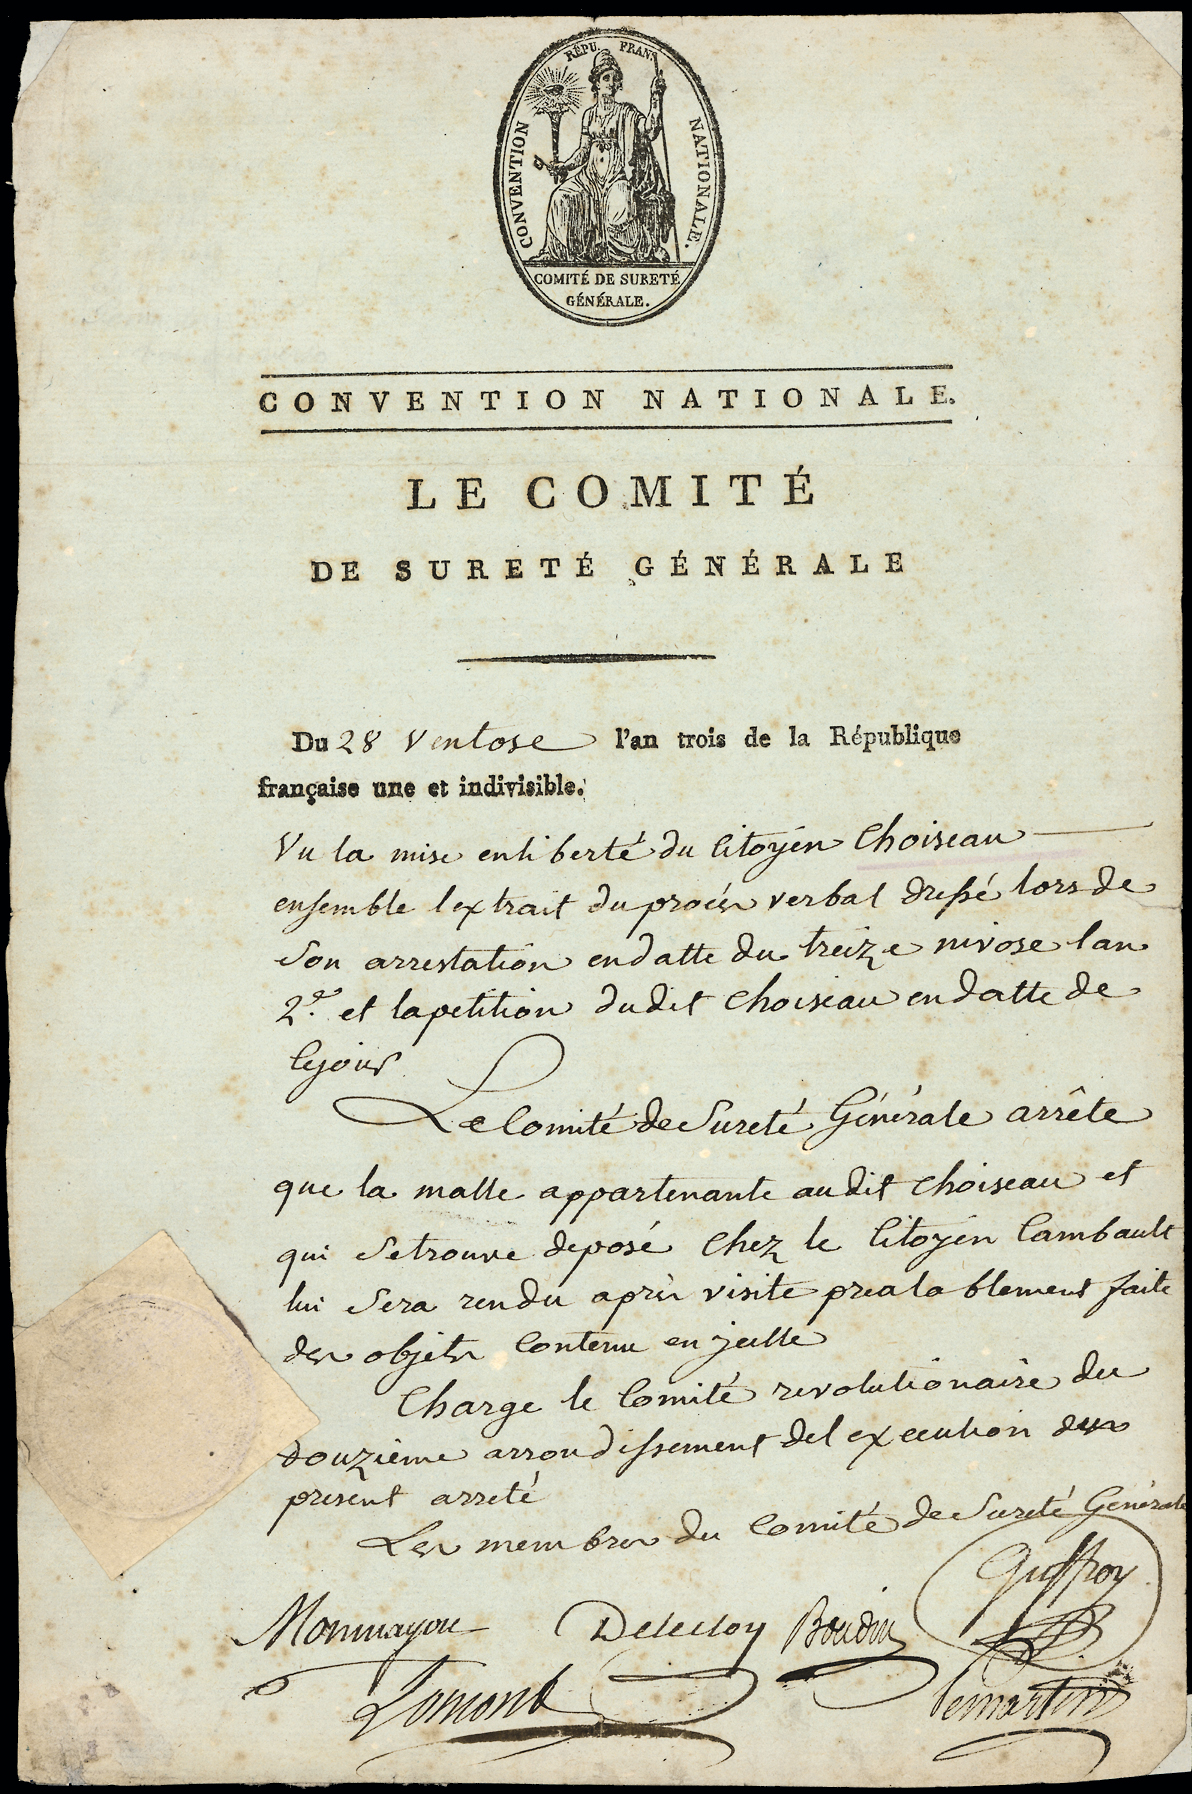 RÉPU. FRANS
CONVENTION NATIONALE.
COMITÉ DE SURETÉ
GÉNÉRALE.
CONVENTION NATIONALE.
LE COMITÉ
DE SURETÉ GÉNÉRALE
Du 28 Ventose l'an trois de la République
française une et indivisible.
Vu la mise en liberté du Citoyen Choiseau
ensemble lextrait du procès verbal dressé lors de
Son arrestation en datte du treize nivose lan
2e. et la petition dudit Choiseau en datte de
Cejour
Le Comité de Sureté Générale arrête
que la malle appartenante audit Choiseau et
qui Setrouve deposé Chez le Citoyen Cambault
lui Sera rendu après visite prealablement faite
des objets Contenu en jcelle
Charge le Comité revolutionaire du
douzième arrondissement del execution du
present arreté
Les membres du Comité de Sureté Générale
Guffroy
Monmayou Delecloy Boudin
Lomont Lemartin